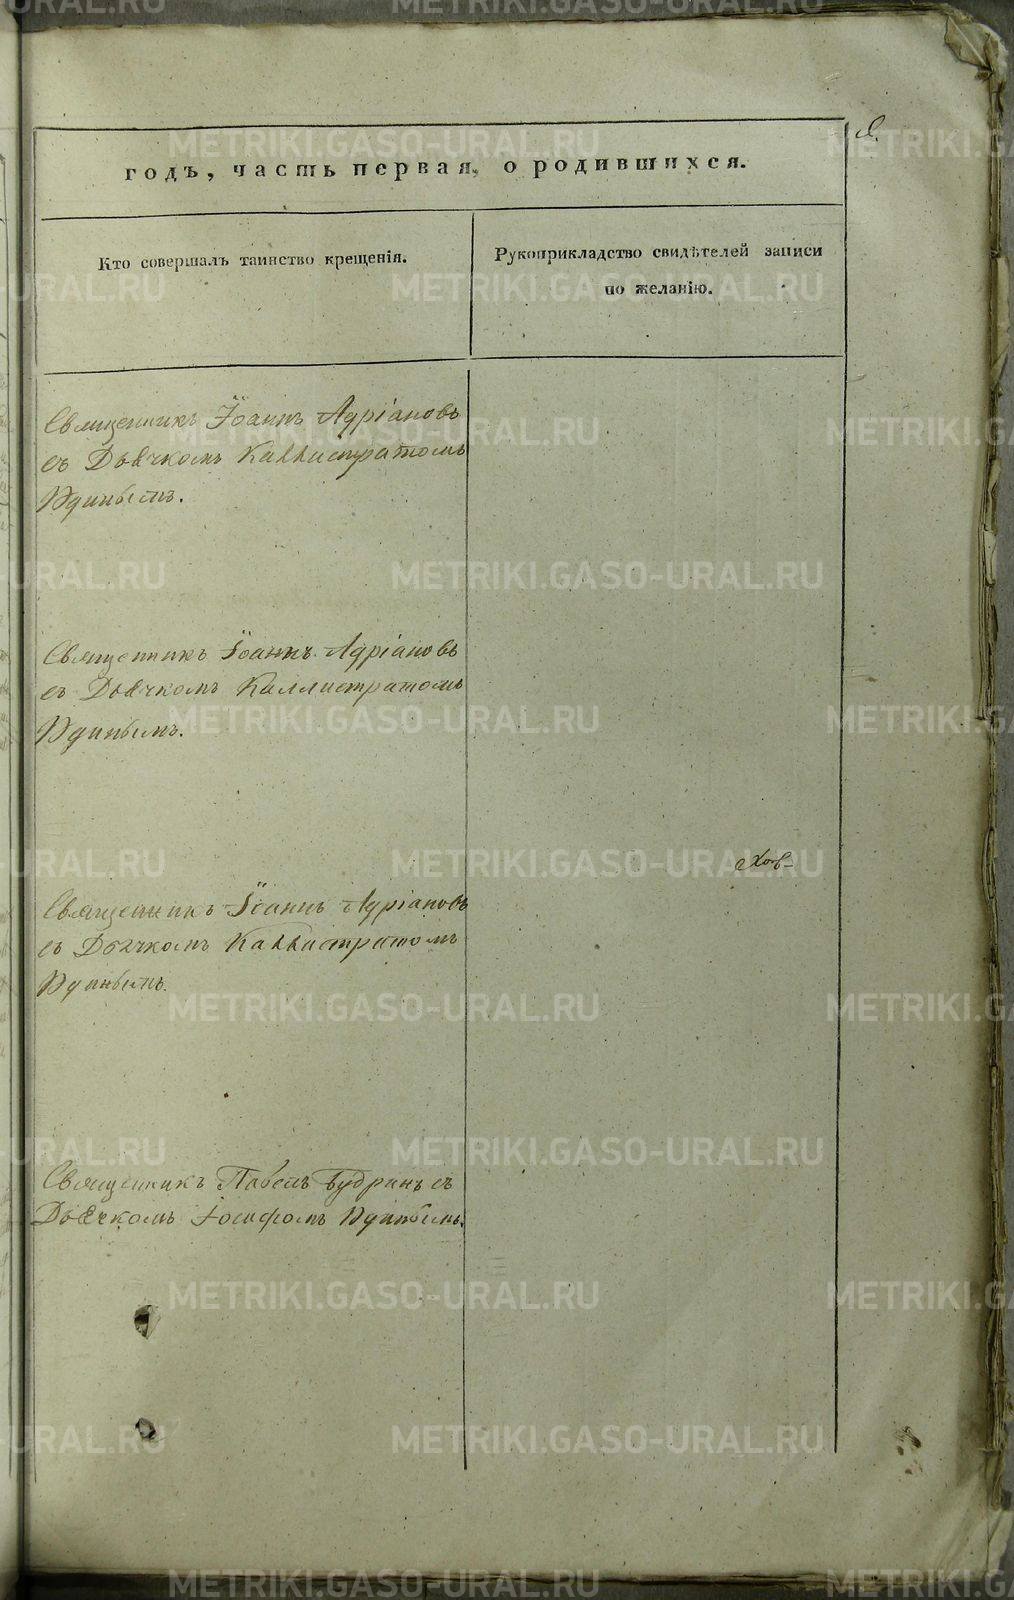 годъ, часть первая, о родившихся.
Кто совершалъ таинство крещенія.
Рукоприкладство свидѣтелей записи
по желанію.
Священникъ Іоаннъ Адріановъ
съ Дьячкомъ Каллистратомъ
Удинымъ.
Священникъ Іоаннъ Адріановъ
съ Дьячкомъ Каллистратомъ
Удинымъ.
Священникъ Іоаннъ Адріановъ
съ Дьячкомъ Каллистратомъ
Удинымъ.
Священникъ Павелъ Будринъ съ
Дьячкомъ Іосифомъ Удинымъ.
METRIKI.GASO-URAL.RU